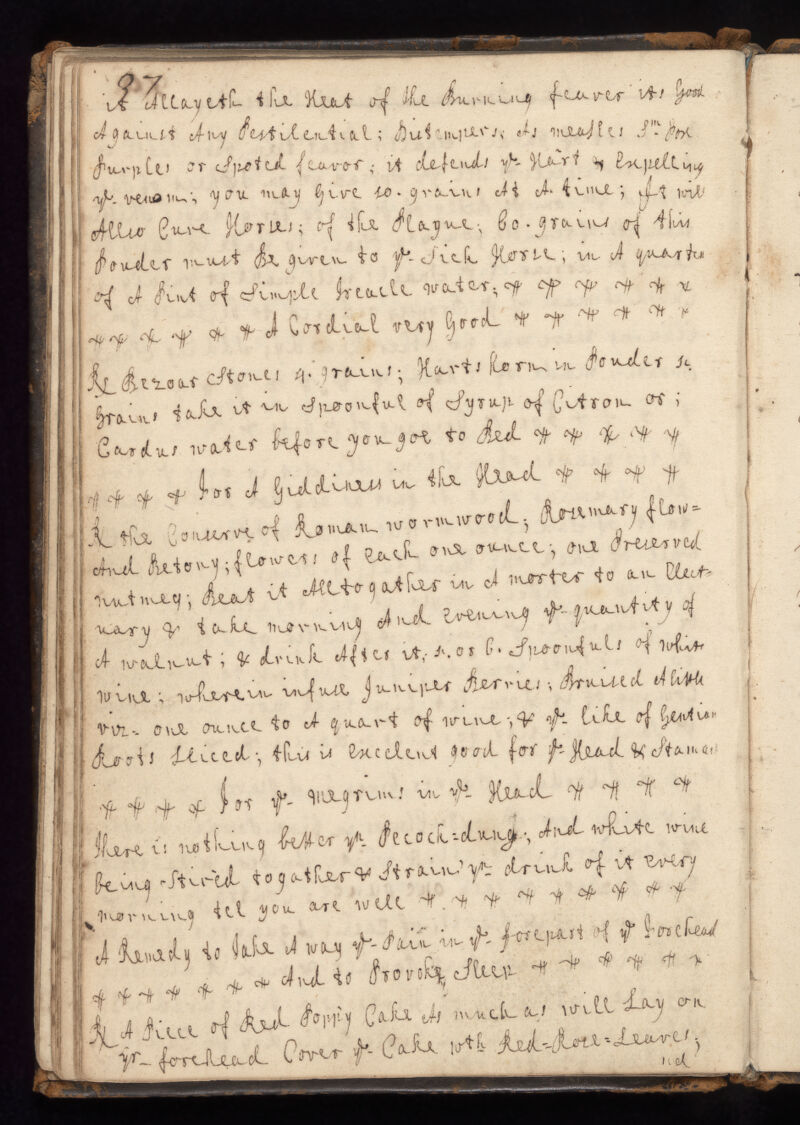 37
it Allayeth the Heat of the Burning feaver its Good
Against Any Pestilential; Distempers; As measles Sm Pox
Purples or Spoted feavor; it defends ye Hart & Expelling
ye venom; you may Give 10. grains At A time; It will
Allso Cure Horses; of the Plague; 60. grains of this
Pouder must Be given to ye Sick Horse; in A quarter
of A Pint of Simple Treacle water;
A Cordial very Good
Rx Bezoar Stones 4. grains; Harts horn in Pouder
Grains take it in Spoonful of Syrup of Citron or;
Cardus water before you goe to Bed
For A Giddiness in the Head
Rx the Conserve of Roman wormwood; Rosemary flow=
And Betony; flowers of Each one ounce; one Preserved
nutmeg; Beat it Alltogather in A morter to an Elect=
uary & take morning And Evening ye quantity of
A walnut; & drink After it; 5. or 6. Spoonfuls of white
wine; wherein infuse Juniper Berries; Bruised A little
viz- one ounce to A quart of wine; & ye like of Gentian
Roots Sliced; this is Excelent good for ye Head & Stamac
For ye megrims in ye Head
there is nothing better yn Pecock=dung; And white wine
being Stired togather & Strain'd yn drink of it Every
morning tel you are well
A Remedy to Take A way ye Pain in ye forepart of ye Forehead
And to Provoke Sleep
Rx A Piece of Red Poppy Cake As much as will Lay on
yr forehead Cover ye Cake wth Red=Rose=Leaves;